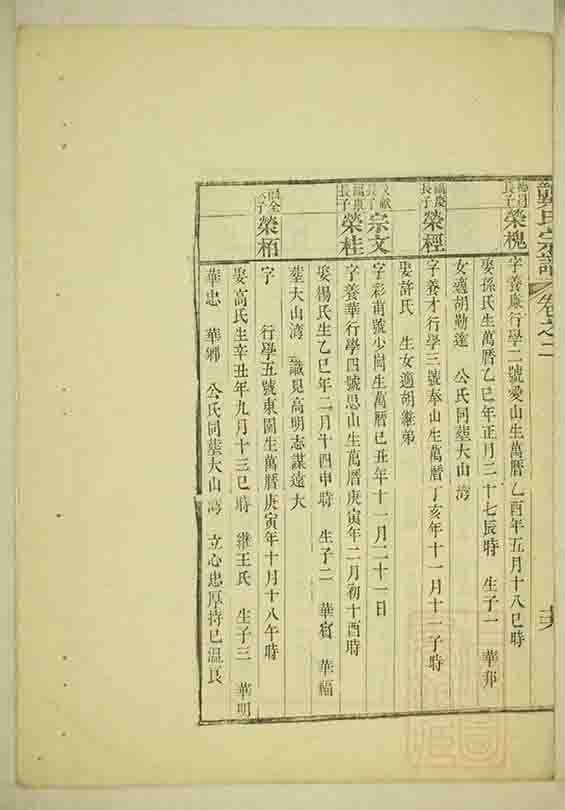 龔氏宗譜 卷之二
長子 榮槐 字養廉行學二號愛山生萬曆乙酉年五月十八巳時
娶孫氏生萬曆乙巳年正月二十七辰時 生子一 華邦
女適胡勤達 公氏同塟大山灣
長子 榮經 字養才行學三號奉山生萬曆丁亥年十一月十一子時
娶許氏 生女適胡兼弟
文獻長子 宗文 字彩甫號少岡生萬曆己丑年十一月二十一日
長子 榮桂 字養華行學四號思山生萬曆庚寅年二月初十酉時
娶楊氏生乙巳年二月十四申時 生子二 華賓 華福
塟大山灣 識見高明志謀遠大
長子 榮栢 字 行學五號東園生萬曆庚寅年十月十八午時
娶高氏生辛丑年九月十三巳時 繼王氏 生子三 華明
華忠 華卿 公氏同塟大山灣 立心忠厚持己溫良